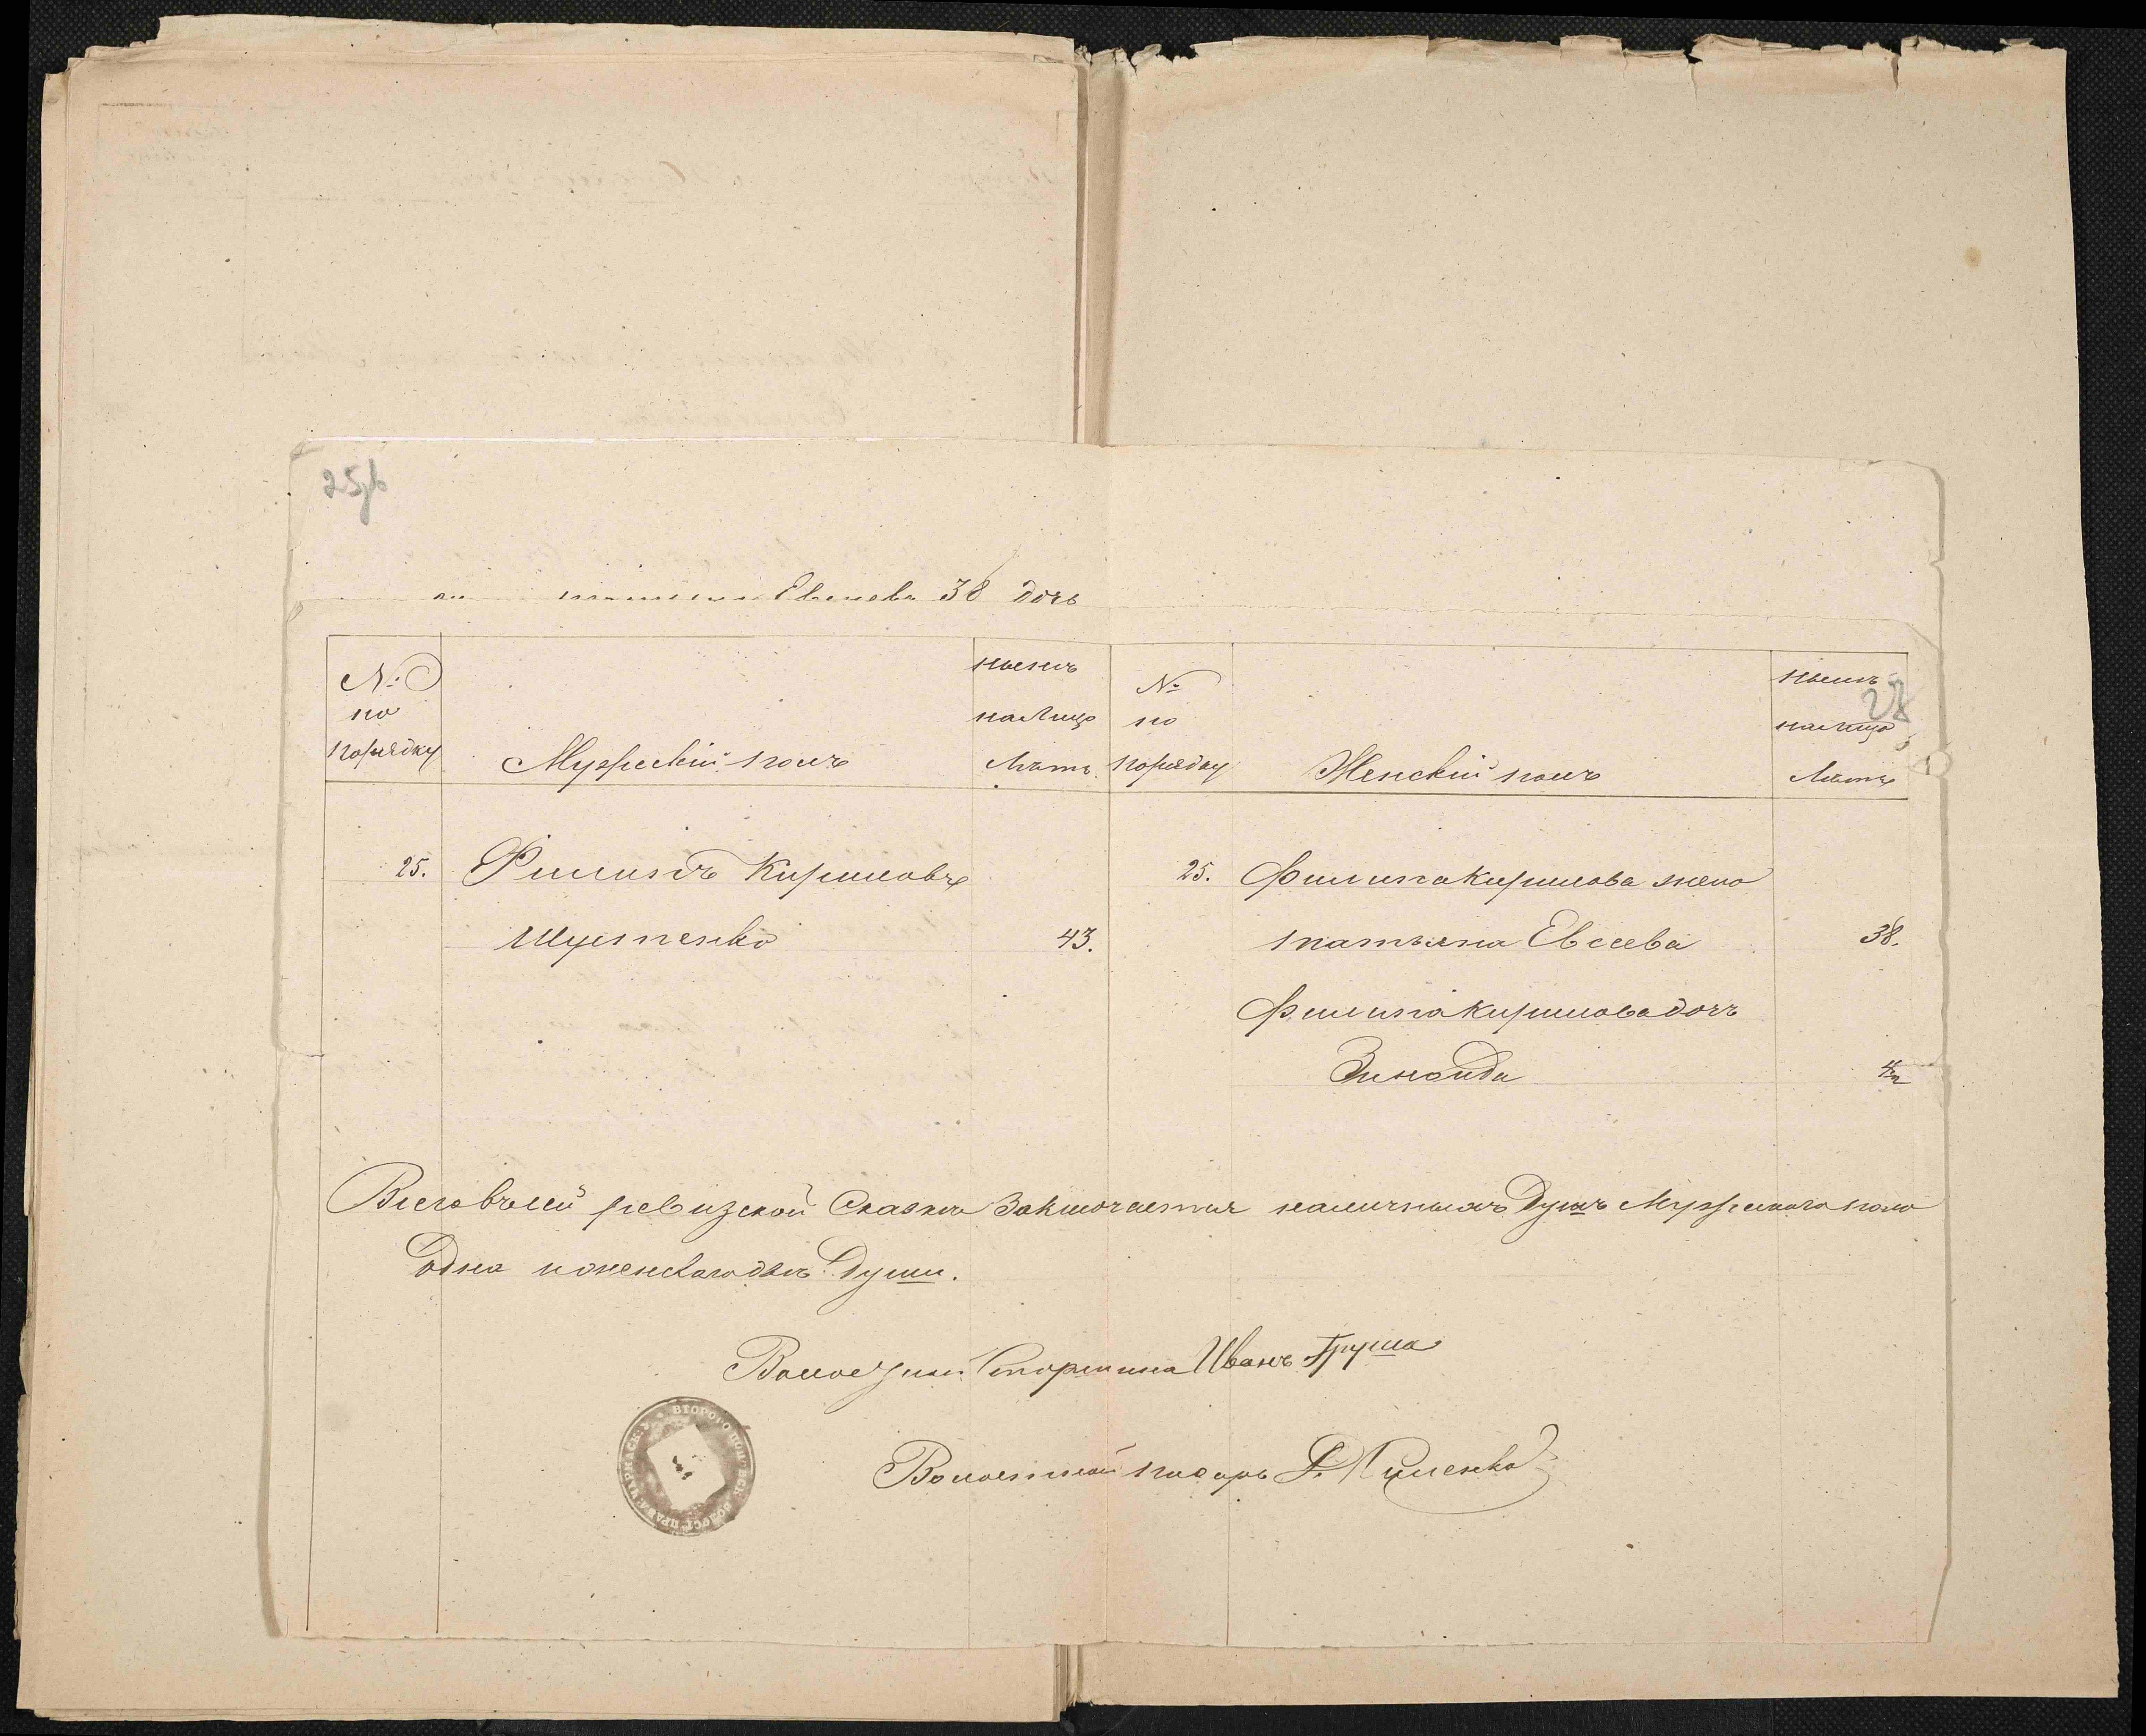 Евсеева 38 дочь
№ по порядку
Мужескій полъ
нынѣ на лицо Лѣтъ.
№ по порядку
Женскій полъ
нынѣ на лицо Лѣтъ
28
25. Филипъ Кириловъ
Шулженко 43.
25. Филипа Кирилова жена
татьяна Евсеева 38.
Филипа Кирилова дочь
Зинаида
Всего въ сей ревизской Сказкѣ Заключается наличныхъ Душъ Мужескаго пола
одна и женскаго двѣ Души.
Волостный Старшина Иванъ Груша
Волостный писарь
ВТОРОГО